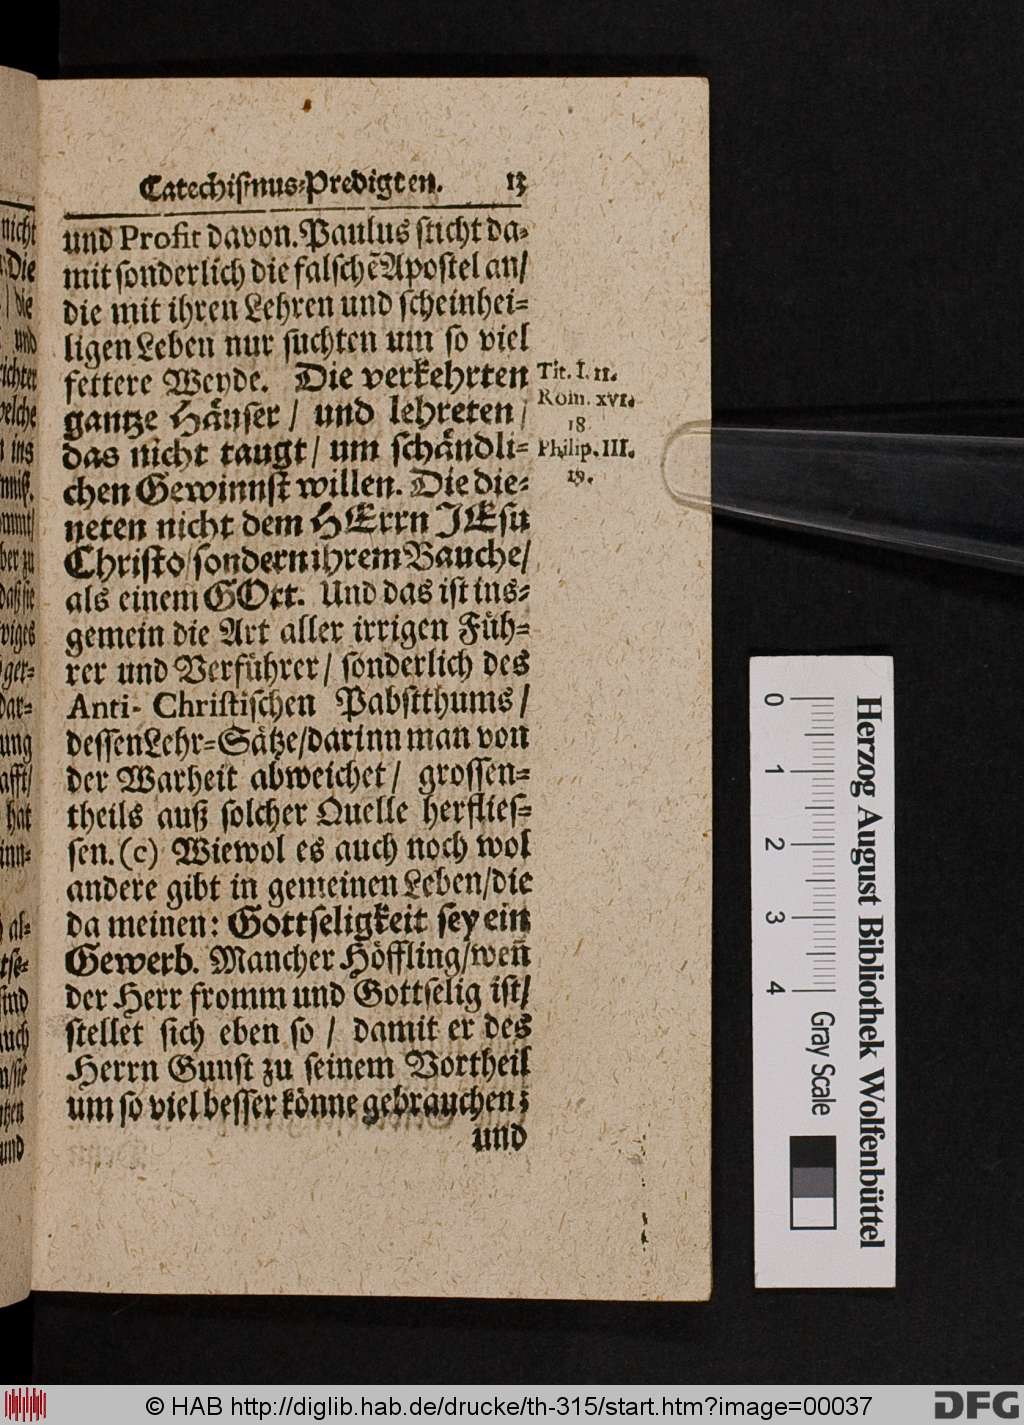 Catechiſmus-Predigten. 13
und Profit davon. Paulus ſticht da-
mit ſonderlich die falſchẽ Apoſtel an/
die mit ihren Lehren und ſcheinhei-
ligen Leben nur ſuchten um ſo viel
fettere Weyde. Die verkehrten
gantze Häuſer / und lehreten /
das nicht taugt / um ſchändli-
chen Gewinnſt willen. Die die-
neten nicht dem HErrn JEſu
Chriſto / ſondern ihrem Bauche /
als einem GOtt. Und das iſt ins-
gemein die Art aller irrigen Füh-
rer und Verführer / ſonderlich des
Anti-Chriſtiſchen Pabſtthums /
deſſen Lehr-Sätze / darinn man von
der Warheit abweichet / groſſen-
theils auß ſolcher Quelle herflieſ-
ſen. (c) Wiewol es auch noch wol
andere gibt in gemeinen Leben / die
da meinen: Gottſeligkeit ſey ein
Gewerb. Mancher Höffling / weñ
der Herr fromm und Gottſelig iſt /
ſtellet ſich eben ſo / damit er des
Herrn Gunſt zu ſeinem Vortheil
um ſo viel beſſer könne gebrauchen;
und
Tit. I. 11.
Rom. XVI.
18
Philip. III.
19.
nicht
Die
/ die
und
richtet
welche
ins
ommt/
ber zu
daß ſie
ger-
dar-
ung
hat
inn-
al-
ſind
auch
und
0 1 2 3 4
Gray Scale
Herzog August Bibliothek Wolfenbüttel
© HAB http://diglib.hab.de/drucke/th-315/start.htm?image=00037
DFG